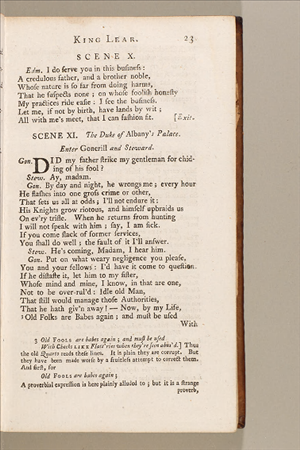 KING LEAR. 23
SCENE X.
Edm. I do serve you in this business:
A credulous father, and a brother noble,
Whose nature is so far from doing harms,
That he suspects none; on whose foolish honesty
My practices ride easie: I see the business.
Let me, if not by birth, have lands by wit;
All with me's meet, that I can fashion fit. [Exit.
SCENE XI. The Duke of Albany's Palace.
Enter Gonerill and Steward.
Gon. DID my father strike my gentleman for chid-
ing of his fool?
Stew. Ay, madam.
Gon. By day and night, he wrongs me; every hour
He flashes into one gross crime or other,
That sets us all at odds; I'll not endure it:
His Knights grow riotous, and himself upbraids us
On ev'ry trifle. When he returns from hunting
I will not speak with him; say, I am sick.
If you come slack of former services,
You shall do well; the fault of it I'll answer.
Stew. He's coming, Madam, I hear him.
Gon. Put on what weary negligence you please,
You and your fellows: I'd have it come to question.
If he distaste it, let him to my sister,
Whose mind and mine, I know, in that are one,
Not to be over-rul'd: Idle old Man,
That still would manage those Authorities,
That he hath giv'n away! — Now, by my Life,
3 Old Folks are Babes again; and must be used
With
3 Old FOOLS are babes again; and must be used
With Checks LIKE Flatt'ries when they're seen abus'd.] Thus
the old Quarto reads these lines. It is plain they are corrupt. But
they have been made worse by a fruitless attempt to correct them.
And first, for
Old FOOLS are babes again;
A proverbial expression is here plainly alluded to; but it is a strange
proverb,